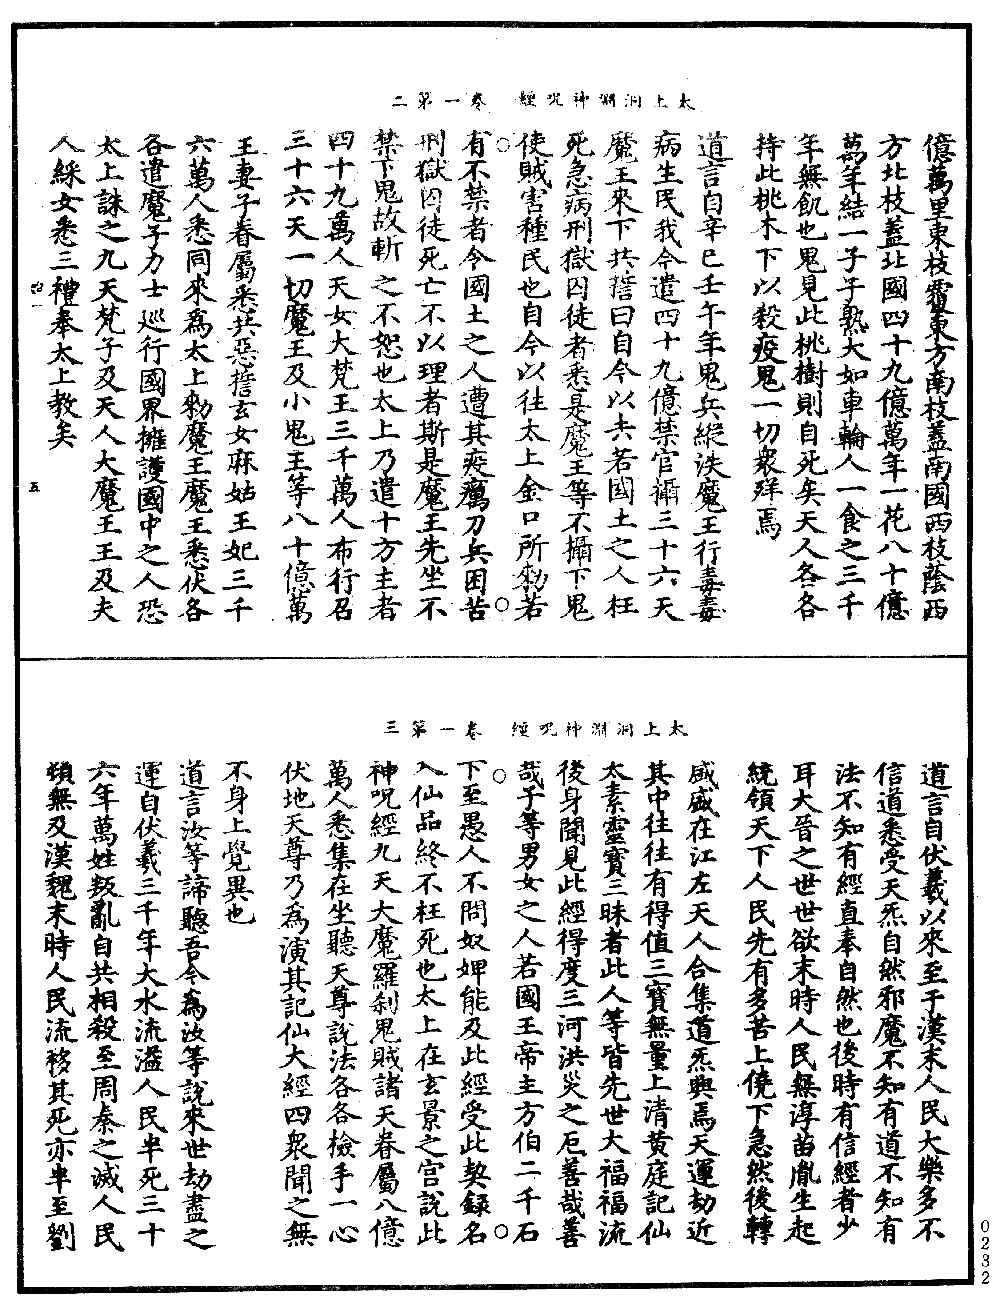 太上洞淵神呪經　卷一第二
億萬里東枝覆東方南枝蓋南國西枝蔭西
方北枝蓋北國四十九億萬年一花八十億
萬年結一子子熟大如車輪人一食之三千
年無飢也鬼見此桃樹則自死矣天人各各
持此桃木下以殺疫鬼一切衆殃焉
道言自辛巳壬午年鬼兵縱泆魔王行毒毒
病生民我今遣四十九億禁官攝三十六天
魔王來下共誓曰自今以去若國土之人枉
死急病刑獄囚徒者悉是魔王等不攝下鬼
使賊害種民也自今以往太上金口所勑若
有不禁者今國土之人遭其疫癘刀兵困苦
刑獄囚徒死亡不以理者斯是魔王先坐不
禁下鬼故斬之不恕也太上乃遣十方主者
四十九萬人天女大梵王三千萬人布行召
三十六天一切魔王及小鬼王等八十億萬
王妻子眷屬悉共惡誓玄女麻姑王妃三千
六萬人悉同來爲太上勑魔王魔王悉伏各
各遣魔子力士巡行國界擁護國中之人恐
太上誅之九天梵子及天人大魔王王及夫
人綵女悉三禮奉太上教矣
始一　五
太上洞淵神呪經　卷一第三
道言自伏羲以來至于漢末人民大樂多不
信道悉受天炁自然邪魔不知有道不知有
法不知有經直奉自然也後時有信經者少
耳大晉之世世欲末時人民無淳苗胤生起
統領天下人民先有多苦上僥下急然後轉
盛盛在江左天人合集道炁興焉天運劫近
其中往往有得值三寶無量上清黄庭記仙
太素靈寶三昧者此人等皆先世大福福流
後身聞見此經得度三河洪災之厄善哉善
哉子等男女之人若國王帝主方伯二千石
下至愚人不問奴婢能及此經受此契録名
入仙品終不枉死也太上在玄景之宫說此
神呪經九天大魔羅刹鬼賊諸天眷屬八億
萬人悉集在坐聽天尊說法各各檢手一心
伏地天尊乃爲演其記仙大經四衆聞之無
不身上覺異也
道言汝等諦聽吾今爲汝等說來世劫盡之
運自伏羲三千年大水流溢人民半死三十
六年萬姓叛亂自共相殺至周秦之滅人民
頓無及漢魏末時人民流移其死亦半至劉
0232